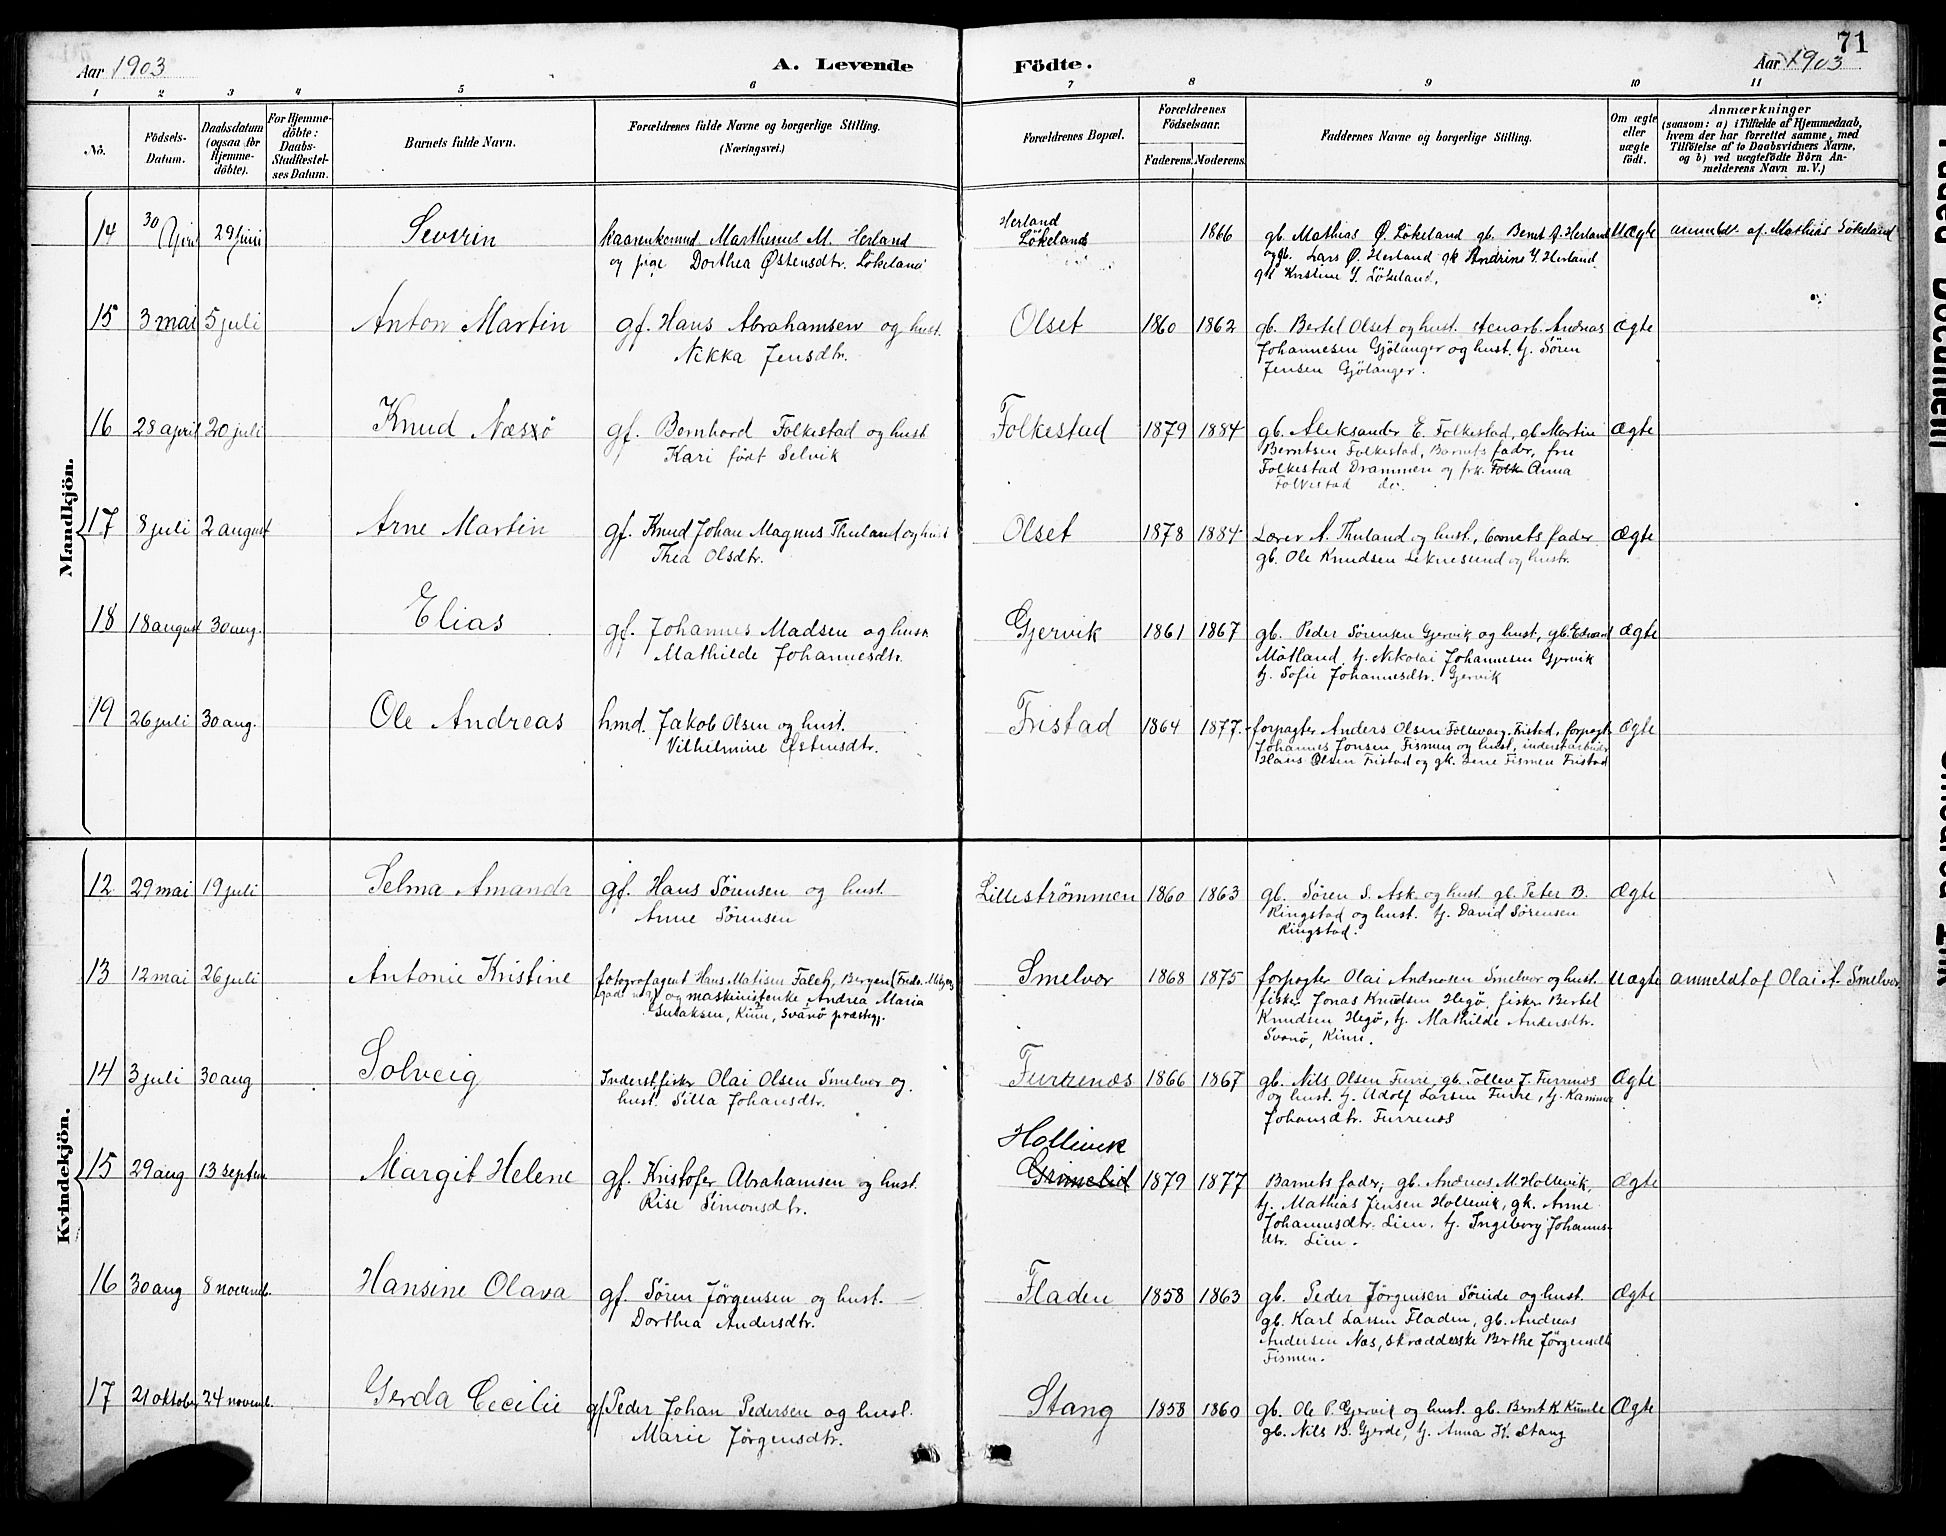 71
Aar 1903 A. Levende Födte. Aar 1903
1 2 3 4 5 6 7 8 9 10 11
No. Födsels-Datum. Daabsdatum (ogsaa for Hjemme-döbte). For Hjemme-döbte: Daabs-Stadfæstel-ses Datum. Barnets fulde Navn. Forældrenes fulde Navne og borgerlige Stilling. (Næringsvei.) Forældrenes Bopæl. Forældrenes Födselsaar. Faderens. Moderens. Faddernes Navne og borgerlige Stilling. Om ægte eller uægte födt. Anmærkninger (saasom: a) i Tilfælde af Hjemmedaab, hvem der har forrettet samme, med Tilföielse af to Daabsvidners Navne, og b) ved uægtefödte Börn An-melderens Navn m. V.)
Mandkjön.
14 30 April 29 juni Severin Marthinus M. Herland Herland 1866 gb. Mathias Ø. Løkeland gb. Bernt A. Herland Uægte anmeldt af Mathias Løkeland
og pige Dorthea Østensdtr. Løkeland Løkeland Lars Ø. Herland gk Andrine Y. Herland
Kristine Y. Løkeland.
15 3 mai 5 juli Anton Martin gf. Hans Abrahamsen og hust. Olset 1860 1862 gb. Bertel Olset og hust. stenarb. Andreas Ægte
Nikka Jensdtr. Johannesen Gjölanger og hust. tj. Sören
Jensen Gjölanger.
16 28 april 20 juli Knud Næsø gf. Bernhard Folkestad og hust Folkestad 1879 1884 gb. Aleksander E. Folkestad, gb. Martin Ægte
Kari født Selvik Berntsen Folkestad, Barnets fader, fru
Folkestad Drammen og frk. Folk Anna
Folkestad do.
17 8 juli 2 august Arne Martin gf. Knud Johan Magnus Thuland og hust Olset 1878 1884 Lærer A. Thuland og hust., barnets fader Ægte
Thea Olsdtr. gb. Ole Knudsen Leknesund og hustr.
18 18 august 30 aug. Elias gf. Johannes Madsen og hust. Gjervik 1861 1867 gb. Peder Sörensen Gjervik og hust, gb. Edvard Ægte
Mathilde Johannesdtr. Måtland, tj. Nikolai Johannesen Gjervik
tj. Sofie Johannesdtr. Gjervik
19 26 juli 30 aug. Ole Andreas hmd. Jakob Olsen og hust. Fristad 1864 1877 forpagter Anders Olsen Follevaag Fristad, forpagt. Ægte
Vilhelmine Østensdtr. Johannes Jonsen, Fismen og hust, inderstarbeider
Hans Olsen Fristad og gk. Lene Fismen Fristad
Kvindekjön.
12 29 mai 19 juli Selma Amanda gf. Hans Sørensen og hust. Lilleströmmen 1860 1863 gb. Søren S. Ask og hust. gb. Peter B. Ægte
Anne Sørensen Ringstad og hust. tj. David Sørensen
Ringstad.
13 12 mai 26 juli Antonie Kristine fotografagent Hans Matisen Falch, Bergen Smelvor 1868 1875 forpagter Olai Andresen Smelvor og hust. Uægte anmeldt af Olai A. Smelvor
og maskinistenke Andrea Maria fisker Jonas Knudsen Hegø, fisker Bertel
Kinn, Svanø præstegj. Knudsen Hegø, tj. Mathilde Andersdtr.
Svanø, Kinn.
14 3 juli 30 aug Solveig Inderst. fisker Olai Olsen Smelvor og Furrenes 1866 1867 gb. Nils Olsen Furre, gb. Tollev J. Furrenes Ægte
hust. Silla Johansdtr. og hust. tj. Adolf Larsen Furre, tj. Kamma
Johansdtr. Furrenes
Hollevik
15 29 aug 13 septem Margit Helene gf. Kristofer Abrahamsen og hust. Grimelid 1879 1877 Barnets fader, gb. Andreas M. Hollevik, Ægte
Rise Simonsdtr. tj. Mathias Jensen Hollevik, gk. Anne
Johannesdtr. Lien, tj. Ingeborg Johannes-
dtr. Lien.
16 30 aug 8 novemb. Hansine Olava gf. Søren Jørgensen og hust. Fladen 1858 1863 gb. Peder Jørgensen Söride og hust. Ægte
Dorthea Andersdtr. gb. Karl Larsen Fladen, gb. Andreas
Andersen Næs, skrædderske Berthe Jørgensdtr
Fismen.
17 21 oktober 24 novemb. Gerda Cecilie gf Peder Johan Pedersen og hust. Stang 1858 1860 gb. Ole P. Gjervik og hust. gb. Bernt K. Kumle Ægte
Marie Jørgensdtr. gb. Nils B. Gjerde, tj. Anna K. Stang